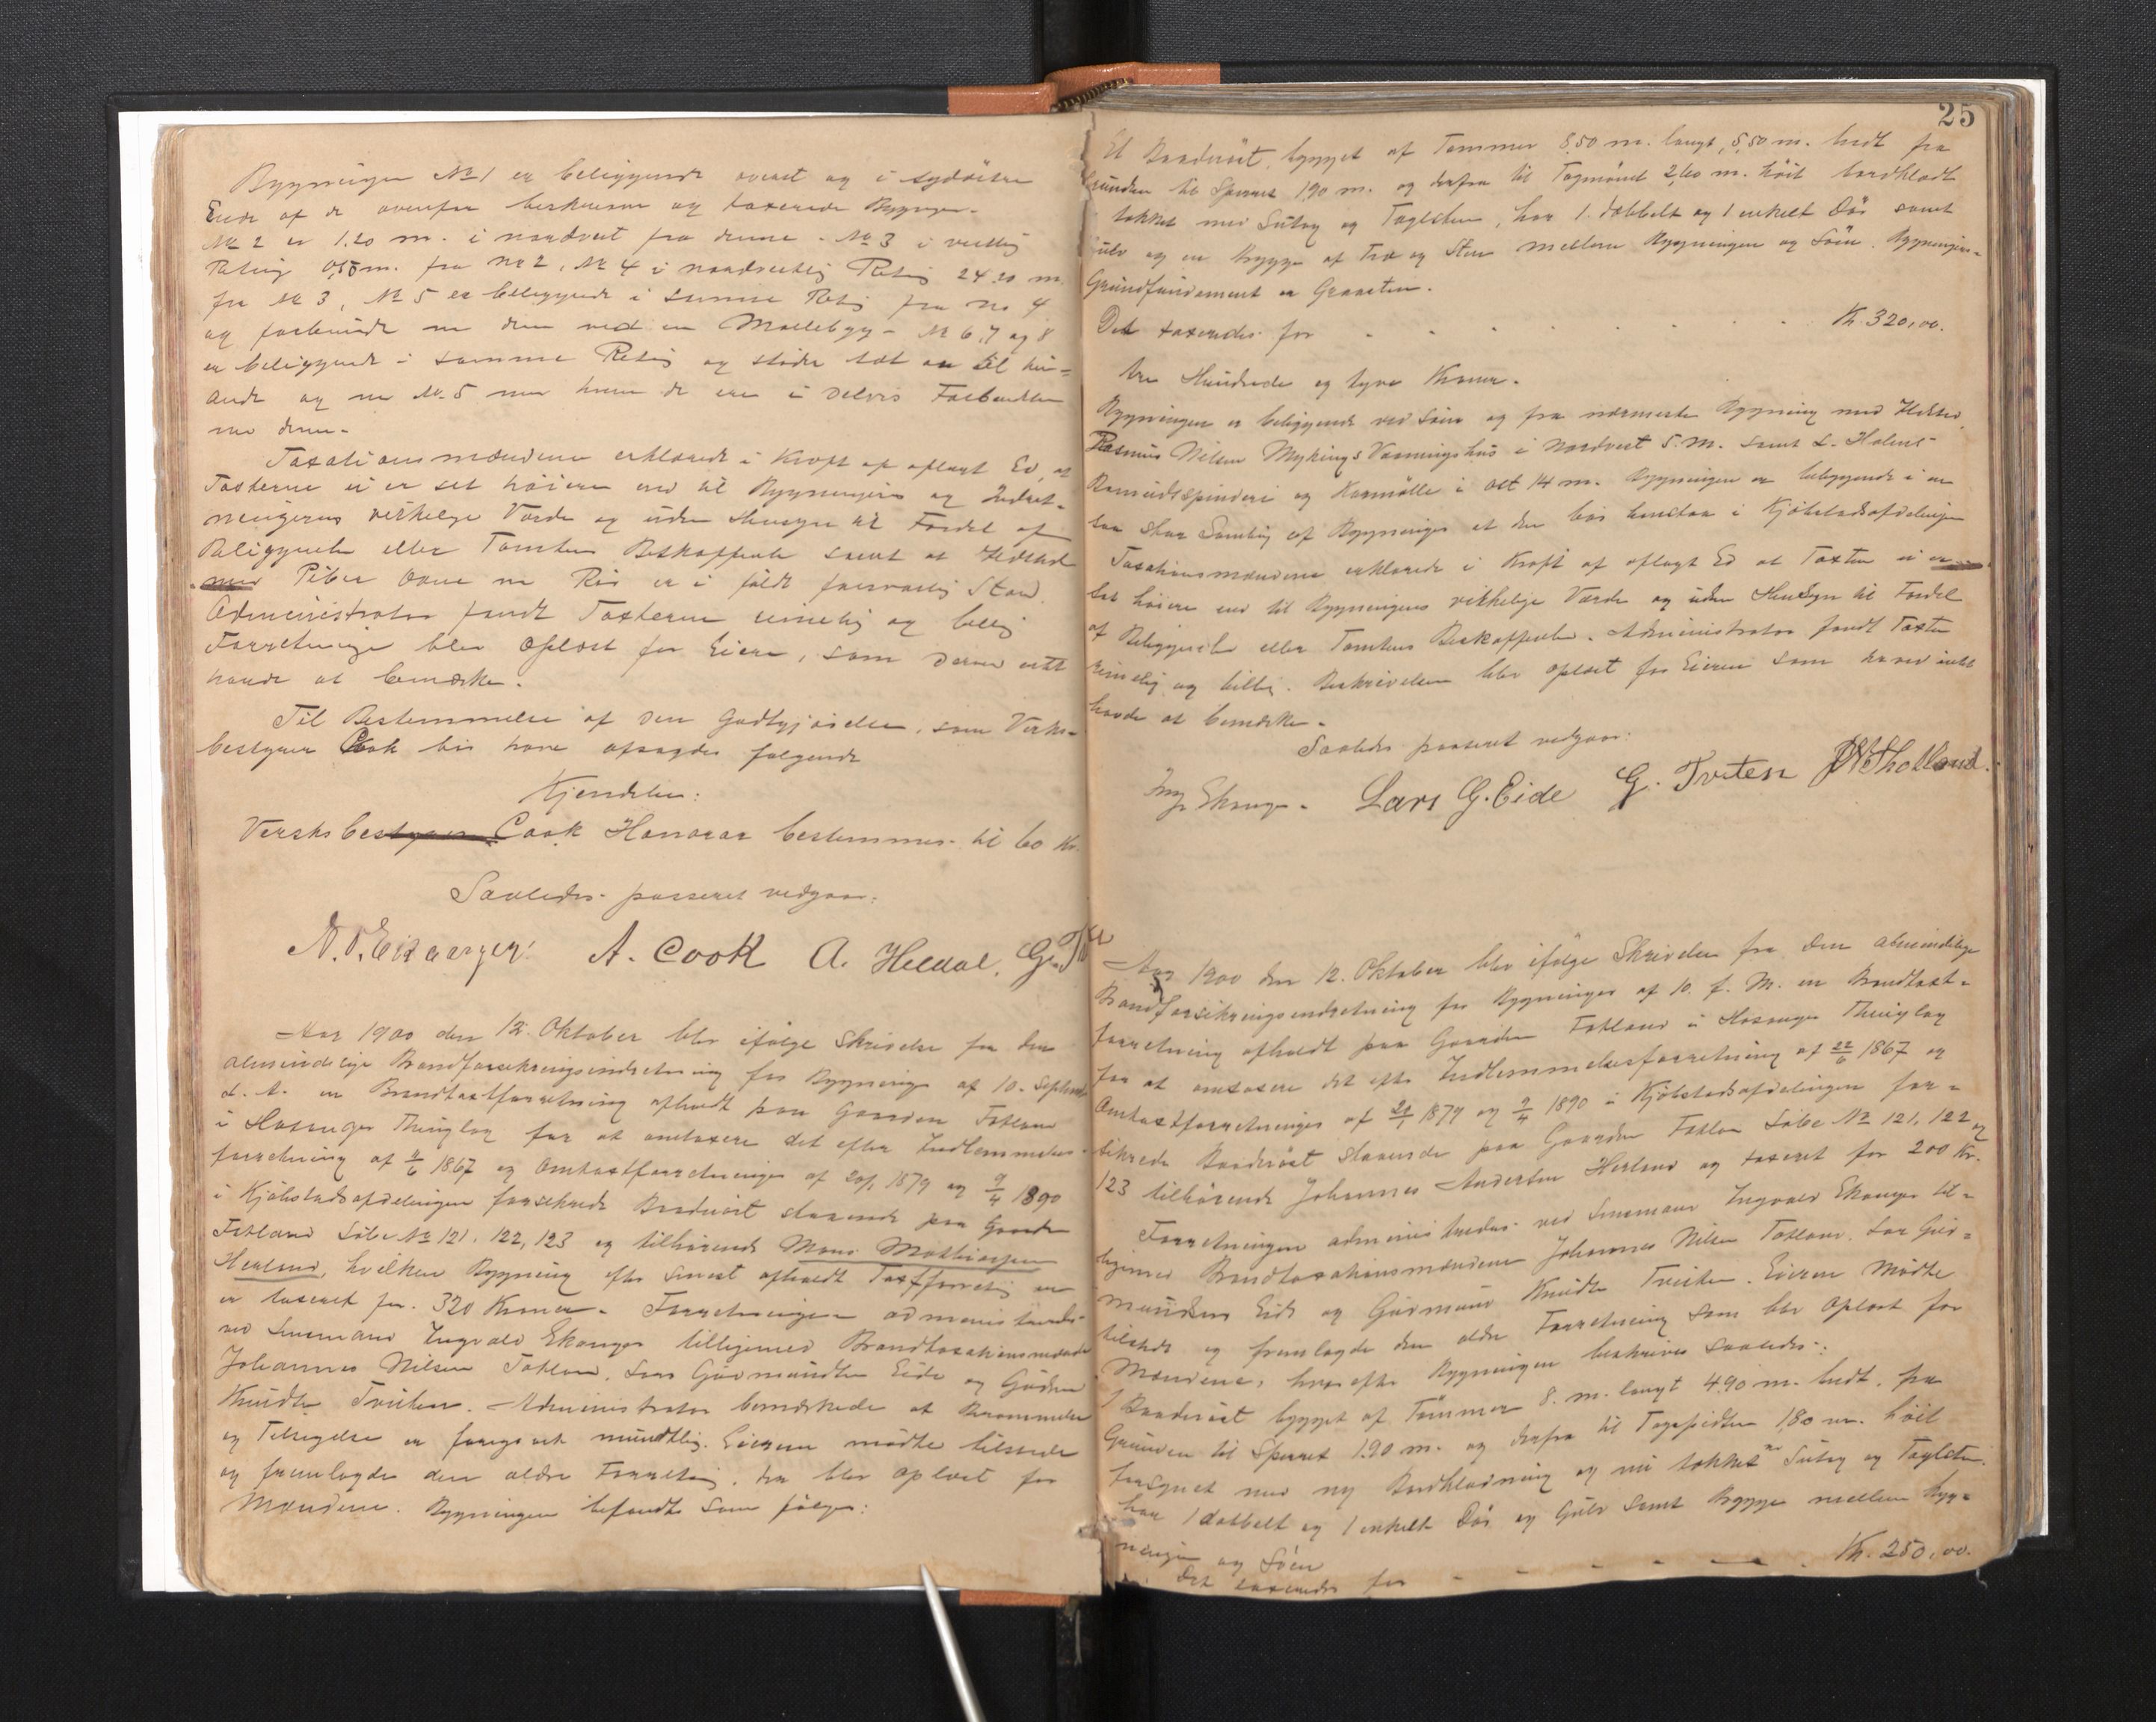 Bygningen No 1 er beliggende øverst og i sydöstre
Ende af de ovenfor beskrevne og taxerede Bygnger.
No 2 er 1.20 m. i nordvest fra denne. No 3 i vestlig
Retnig 0,50 m. fra no 2, No 4 i nordvestlig Retnig 24.20 m.
fra No 3, No 5 er beliggende i samme Retnig fra no 4
og forbundet med den ved en Mellebygn. No 6, 7 og 8
er beliggende i samme Retnig og støder tæt an til hin-
anden og med No. 5 med hvem de ere i delvis Forbindelse
med denne.
Taxationsmændene erklærede i Kraft af aflagt Ed, at
Taxterne ei er sat høiere end til Bygningernes og Indret-
ningernes virkelige Værde og uden Hensyn til Fordel af
Beliggenhed eller Tomtens Beskaffenhed samt at Ildsted
med Piber Ovne og Rør er i fuldt forsvarlig Stand.
Administrator fandt Taxterne rimelig og billig
Forretninge blev oplæst for Eieren, som derved intet
havde at bemærke.
Til Bestemmelse af den Godtgjörelse, som Verks-
bestyrer Cook bør have afsagdes følgende
Kjendelse:
Verksbestyrer Cook Honorar bestemmes til 60 Kr.
Saaledes passeret vedgaar:
A. Cook A. Heldal, G. Tv
Aar 1900 den 12. Oktober blev ifølge Skrivelse fra den
almindelige Brandforsikringsindretning for Bygninger af 10. September
d. A. en Brandtaxtforretning afholdt paa Gaarden Fotland
i Hosanger Thinglag for at omtaxere det efter Indlemmelses-
forretning af 1867 og Omtaxtforretninger af 20/1 1879 og 9/4 1890
i Kjøbstadsafdelingen forsikrede Baadnöst staaende paa Gaarden
Fotland Löbe No 121, 122, 123 og tilhörende Mons Mathiassen
Herland, hvilken Bygning efter senest afholdt Taxtforretnig
er taxeret for 320 Kroner. Forretningen administreredes
ved Lensmand Ingvald Ekanger tilligemed Brandtaxationsmændene
Johannes Nilsen Fotland, Lars Gudmundsen Eide og Gudmund
Knudsen Tveiten. Administrator bemærkede at Berammelse
og Tilsigelse er foregaaet mundtlig. Eieren mødte tilstede
og fremlagde den ældre Forretnig, der blev oplæst for
Mændene. Bygningen befandtes som følger:
25
Et Baadnöst, bygget af Tømmer 8,50 m. langt, 5,50 m. bredt fra
Grunden til Sparret 1,90 m. og derfra til Tagmønet 2,60 m. höit bordklædt
tækket med Sutag og Taglsten, har 1. dobbelt og 1 enkelt Dör samt
Gulv og en Brygge af Træ og Sten mellem Bygningen og Söen. Bygningens
Grundfundament er Graasten.
Det taxeredes for - - - - - - Kr. 320,00.
tre Hundrede og tyve Kroner.
Bygningen er beliggende ved Söen og fra nærmeste Bygning med Ildsted,
Rasmus Nilsen Mykings Vaaningshus i Nordvest 5. m. samt L. Holms
Bomuldsspinderi og Kornmölle i Öst 14 m. Bygningen er beliggende i en
saa stor Samling af Bygninger at den bör henstaa i Kjöbstadsafdelingen
Taxationsmændene erklærede i Kraft af aflagt Ed at Taxten ei er
sat höiere end til Bygningens virkelige Værde og uden Hensyn til Fordel
af Beliggenhed eller Tomtens Beskaffenhed. Administrator fandt Taxten
rimelig og billig. Beskrivelsen blev oplæst for Eieren som derved intet
havde at bemærke.
Saaledes passeret vedgaar:
Ing. Ekanger. Lars G. Eide G. Tveten
Aar 1900 den 12. Oktober blev ifølge Skrivelse fra den almindelige
Brandforsikringsindretning for Bygninger af 10. f. M. en Brandtaxt-
forretning afholdt paa Gaarden Fotland i Hosanger Thinglag
for at omtaxere det efter Indlemmelsesforretning af 22/6 1867 og
Omtaxtforretninger af 1879 og 9/4 1890 i Kjöbstadsafdelingen for-
sikrede Baadnöst staaende paa Gaarden Fotland Löbe No 121, 122 og
123 tilhörende Johannes Andersen Herland og taxeret for 200 Kr.
Forretningen administreredes ved Lensmand Ingvald Ekanger til-
ligemed Brandtaxationsmændene Johannes Nilsen Fotland, Lars Gud-
mundsen Eide og Gudmund Knudsen Tveiten. Eieren mödte
tilstede og fremlagde den ældre Forretning som blev oplæst for
Mændene, hvorefter Bygningen beskrives saaledes:
1 Baadnöst bygget af Tömmer 8. m. langt 4.90 m. bredt, fra
Grunden til Sparret 1.90 m. og derfra til Tagspidsen 1,80 m. höit
forsynet med ny Bordklædning og nu tækket med Sutag og Taglsten.
har 1 dobbelt og 1 enkelt Dör og Gulv samt Brygge mellem Byg-
ningen og Söen
Det taxeredes for - - - - - Kr. 250,00.